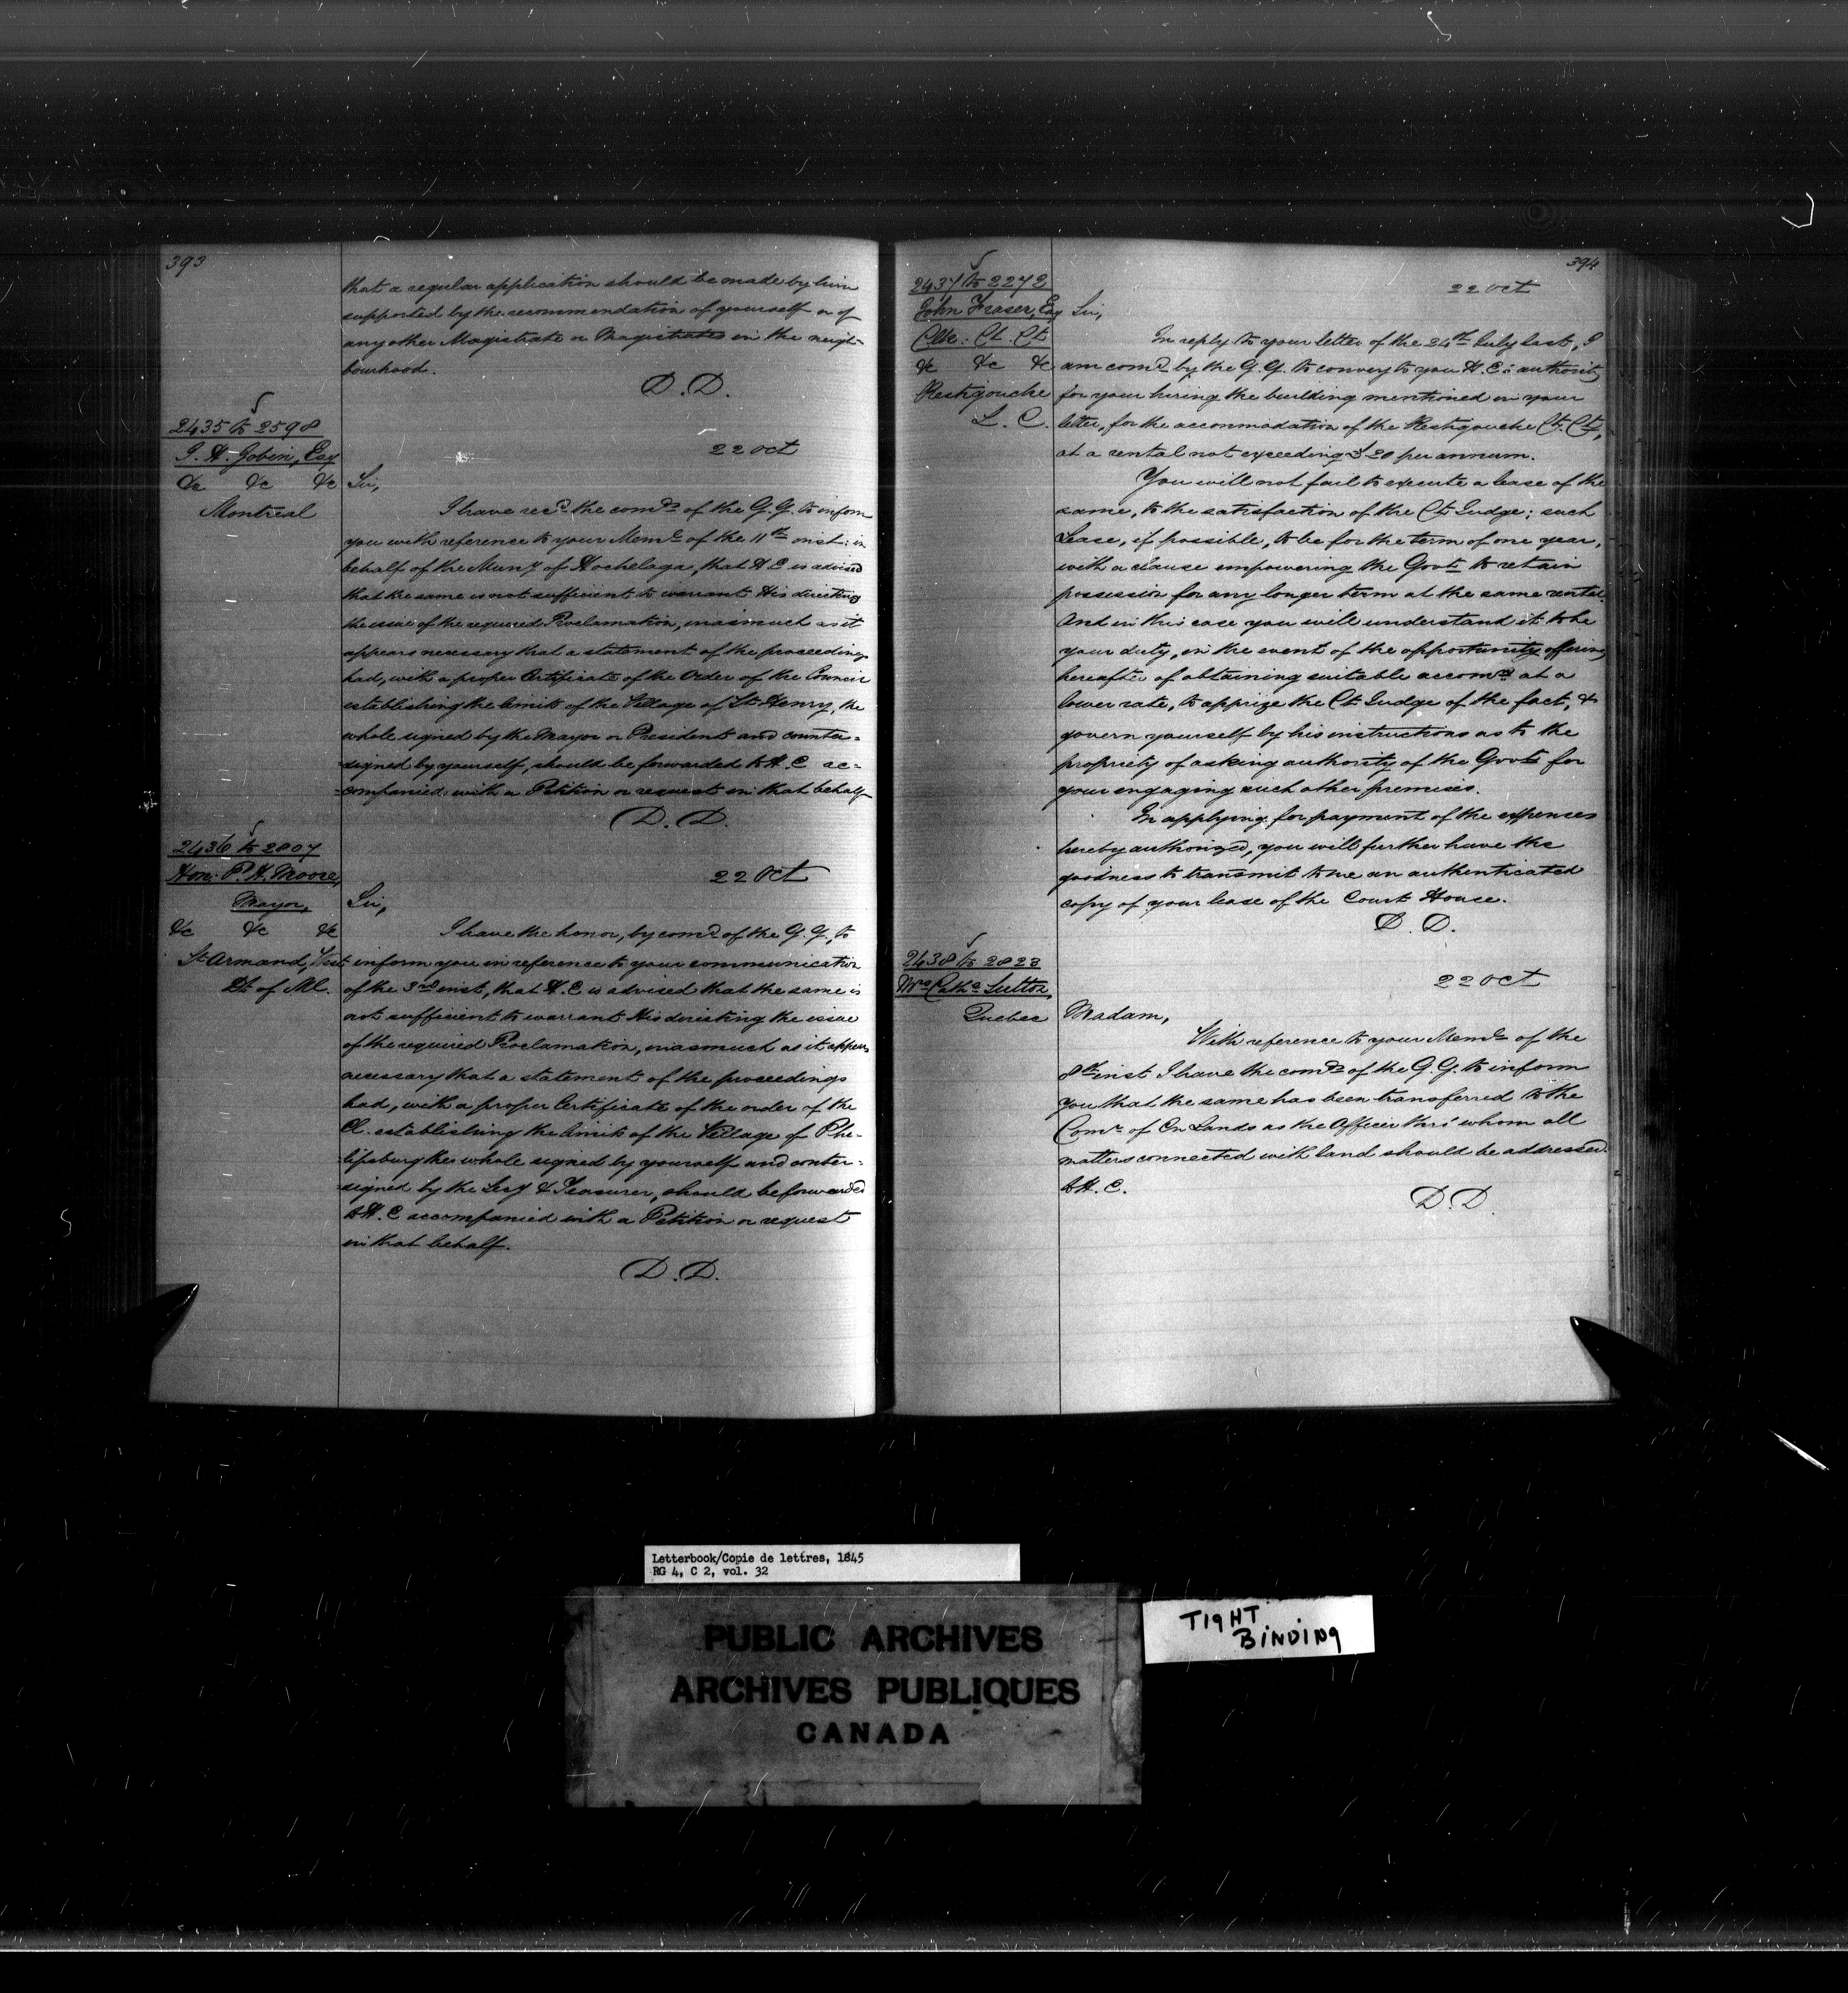 393
that a regular application should be made by him
supported by the recommendation of yourself or of
any other Magistrate or Magistrates in the neigh-
bourhood.
D.D.
2435 to 2598
G. A. Gobin, Esq
&c &c &c
Montreal
22 Oct
Sir,
I have recd. the comds of the G.G. to inform
you with reference to your Meml of the 11th inst: in
behalf of the Muny of Hochelaga, that H.E is advised
that the same is not sufficient to warrant His directing
the issue of the required Proclamation, inasmuch as it
appears necessary that a statement of the proceedings
had, with a proper Certificate of the Order of the Council
establishing the limits of the Village of St Henry, the
whole signed by the Mayor or President and counter=
=signed by yourself, should be forwarded to H.E ac=
=companied with a Petition or request in that behalf
D.D.
2436 to 2807
Hon: P. H. Moore,
Mayor,
&c &c &c
St Armand, West
Dt. of Ml.
22 Oct
Sir,
I have the honor, by comd of the G.G., to
inform you in reference to your communication
of the 3rd inst, that H.E is advised that the same is
not sufficient to warrant His directing the issue
of the required Proclamation, inasmuch as it appears
necessary that a statement of the proceedings
had, with a proper Certificate of the order of the
Cl. establishing the limits of the Village of Phi-
lipsburg the whole signed by yourself and conter=
=signed by the Secy & Treasurer, should be forwarded
to H.E accompanied with a Petition or request
in that behalf.
D.D.
394
2437 to 2272
John Fraser, Esq
Clk. Ct. Ct
&c &c &c
Restigouche
L. C.
22 Oct
Sir,
In reply to your letter of the 24th July last, I
am comd by the G.G. to convey to you H.E's authority
for your hiring the building mentioned in your
letter, for the accommodation of the Restigouche Ct. Ct,
at a rental not exceeding £20 per annum.
You will not fail to execute a lease of the
same, to the satisfaction of the Ct Judge; such
Lease, if possible, to be for the term of one year,
with a clause empowering the Govt to retain
possession for any longer term at the same rental.
And in this case you will understand it to be
your duty, in the event of the opportunity offering
hereafter of obtaining suitable accomn at a
lower rate, to apprize the Ct Judge of the fact, &
govern yourself by his instructions as to the
propriety of asking authority of the Govt for
your engaging such other premises.
In applying for payment of the expenses
hereby authorized, you will further have the
goodness to transmit to me an authenticated
copy of your lease of the Court House.
D.D.
2438 to 2823
Mrs Cathe Sutton,
Quebec
22 Oct
Madam,
With reference to your Meml of the
8th inst I have the comds of the G.G. to inform
you that the same has been transferred to the
Comr of Cn Lands as the Officer thro' whom all
matters connected with land should be addressed
to H.E.
D.D.
Letterbook/Copie de lettres, 1845
RG 4, C 2, vol. 32
PUBLIC ARCHIVES
ARCHIVES PUBLIQUES
CANADA
TIGHT
BINDING